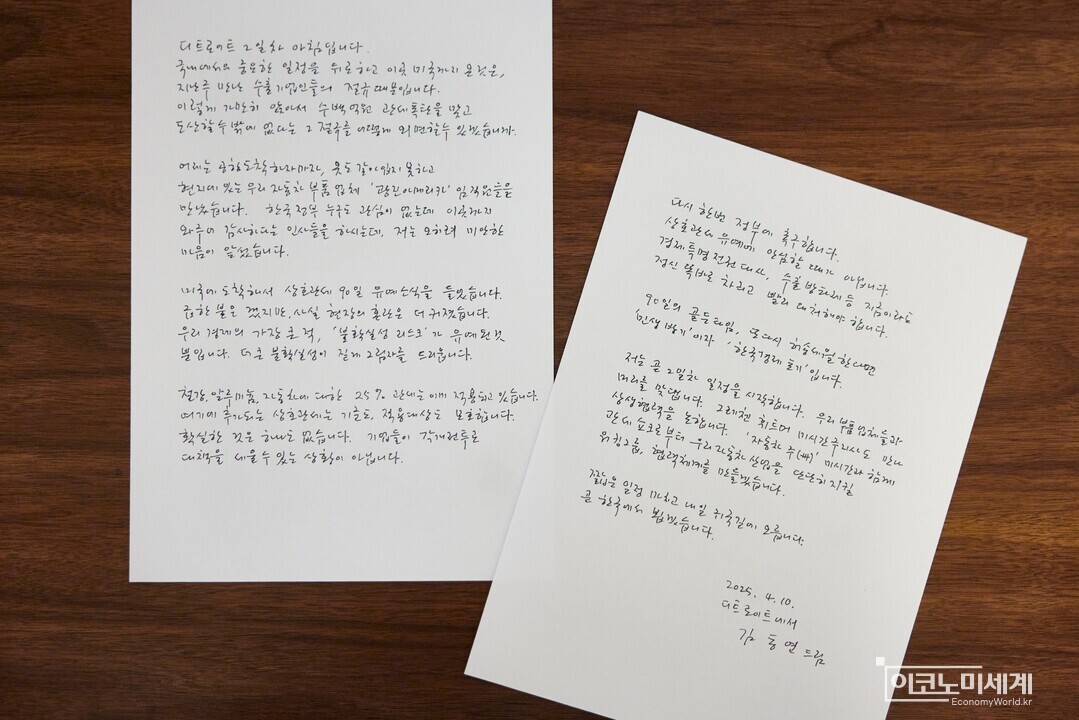 디트로이트 2일차 아침입니다.
국내에서의 중요한 일정을 뒤로하고 이곳 미국까지 온 것은,
지난주 만난 수출기업인들의 절규 때문입니다.
이렇게 가만히 앉아서 수백 억원 관세폭탄을 맞고
도산할 수 밖에 없다는 그 절규를 어떻게 외면할 수 있겠습니까.
어제는 공항 도착하자마자, 옷도 갈아입지 못하고
현지에 있는 우리 자동차 부품업체 '광진아메리카' 임직원들을
만났습니다. 한국정부 누구도 관심이 없는데 이곳까지
와주어 감사하다는 인사들을 하시는데, 저는 오히려 미안한
마음이 앞섰습니다.
미국에 도착해서 상호관세 90일 유예소식을 들었습니다.
급한 불은 껐지만, 사실 현장의 혼란은 더 커졌습니다.
우리 경제의 가장 큰 적, '불확실성 리스크'가 유예된 것
뿐입니다. 더 큰 불확실성이 짙게 그림자를 드리웁니다.
철강, 알루미늄, 자동차에 대한 25% 관세는 이미 적용되고 있습니다.
여기에 추가되는 상호관세는 기준도, 적용대상도 모호합니다.
확실한 것은 하나도 없습니다. 기업들이 각개전투로
대책을 세울 수 있는 상황이 아닙니다.
다시 한번 정부에 촉구합니다.
상호관세 유예에 안심할 때가 아닙니다.
경제특명전권대사, 수출방파제 등 지금이라도
정신 똑바로 차리고 빨리 대처해야 합니다.
90일의 골든타임, 또다시 허송세월 한다면
'민생 방기'이자 '한국경제 포기'입니다.
저는 곧 2일차 일정을 시작합니다. 우리 부품업체들과
머리를 맞댑니다. 그레첸 휘트머 미시간주지사도 만나
상생협력을 논합니다. '자동차 주(州)' 미시간과 함께
관세 쇼크로부터 우리 자동차 산업을 단단히 지킬
워킹그룹, 협력체계를 만들겠습니다.
짧은 일정 마치고 내일 귀국길에 오릅니다.
곧 한국에서 뵙겠습니다.
2025. 4. 10.
디트로이트에서
김동연 드림
이코노미세계
EconomyWorld.kr